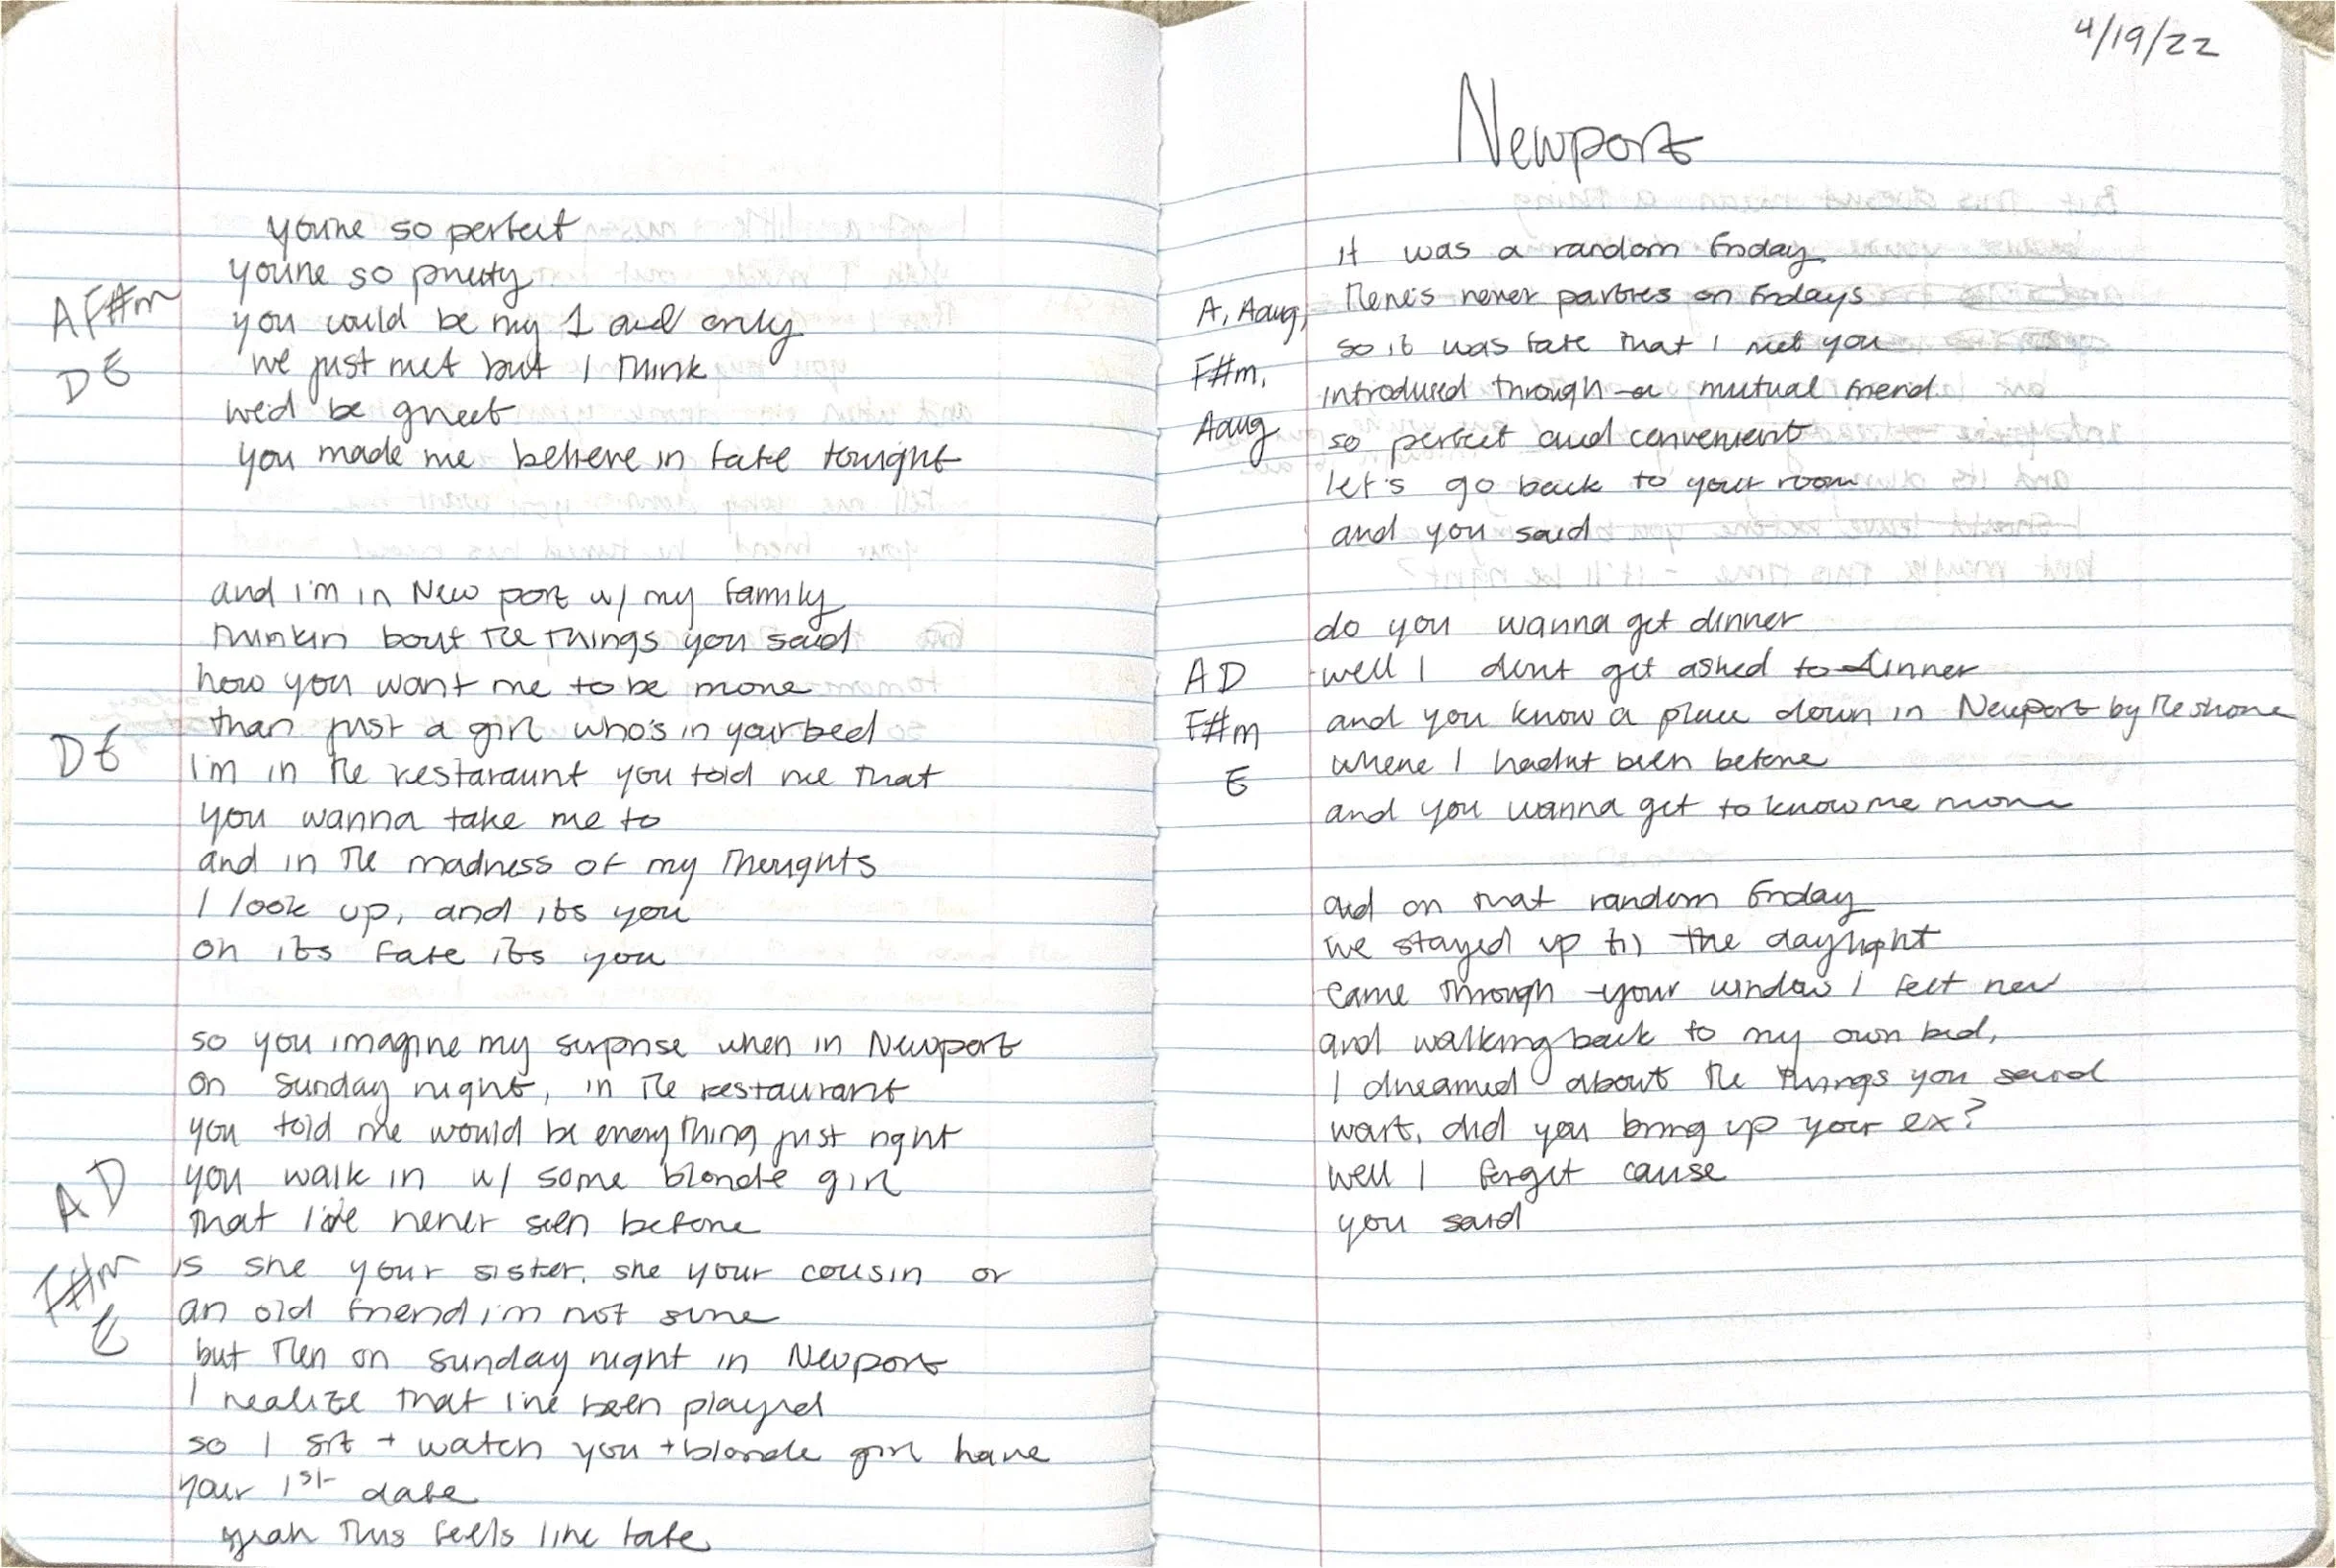 you're so perfect
you're so pretty
A F#m
you could be my 1 and only
we just met but I think
D E
we'd be great
you made me believe in fate tonight
and i'm in New port w/ my family
thinkin bout the things you said
how you want me to be more
than just a girl who's in your bed
D E
I'm in the restaraunt you told me that
you wanna take me to
and in the madness of my thoughts
I look up, and its you
oh its fate its you
so you imagine my surprise when in Newport
on sunday night, in the restaurant
you told me would be everything just right
you walk in w/ some blonde girl
A D
that i've never seen before
is she your sister, she your cousin or
F#m
an old friend i'm not sure
E
but then on sunday night in Newport
I realize that i've been played
so I sit + watch you + blonde girl have
your 1st date
yeah this feels like fate
4/19/22
Newport
it was a random friday
A, Aaug,
there's never parties on fridays
so it was fate that I met you
F#m,
introduced through a mutual friend
Aaug
so perfect and convenient
let's go back to your room
and you said
do you wanna get dinner
A D
well I dont get asked to dinner
F#m
and you know a place down in Newport by the shore
where I hadnt been before
E
and you wanna get to know me more
and on that random friday
we stayed up til the daylight
came through your window I felt new
and walking back to my own bed,
I dreamed about the things you said
wait, did you bring up your ex?
well I forget cause
you said